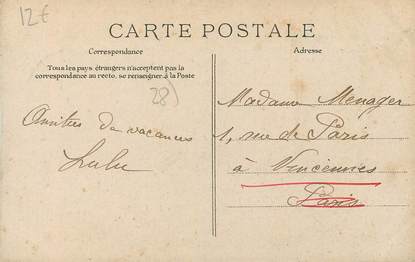 12€
CARTE POSTALE
Correspondance
Adresse
Tous les pays étrangers n'acceptent pas la
correspondance au recto, se renseigner à la Poste
28)
Amitiés de vacances
Lulu
Madame Menager
1, rue de Paris
à Vincennes
Paris